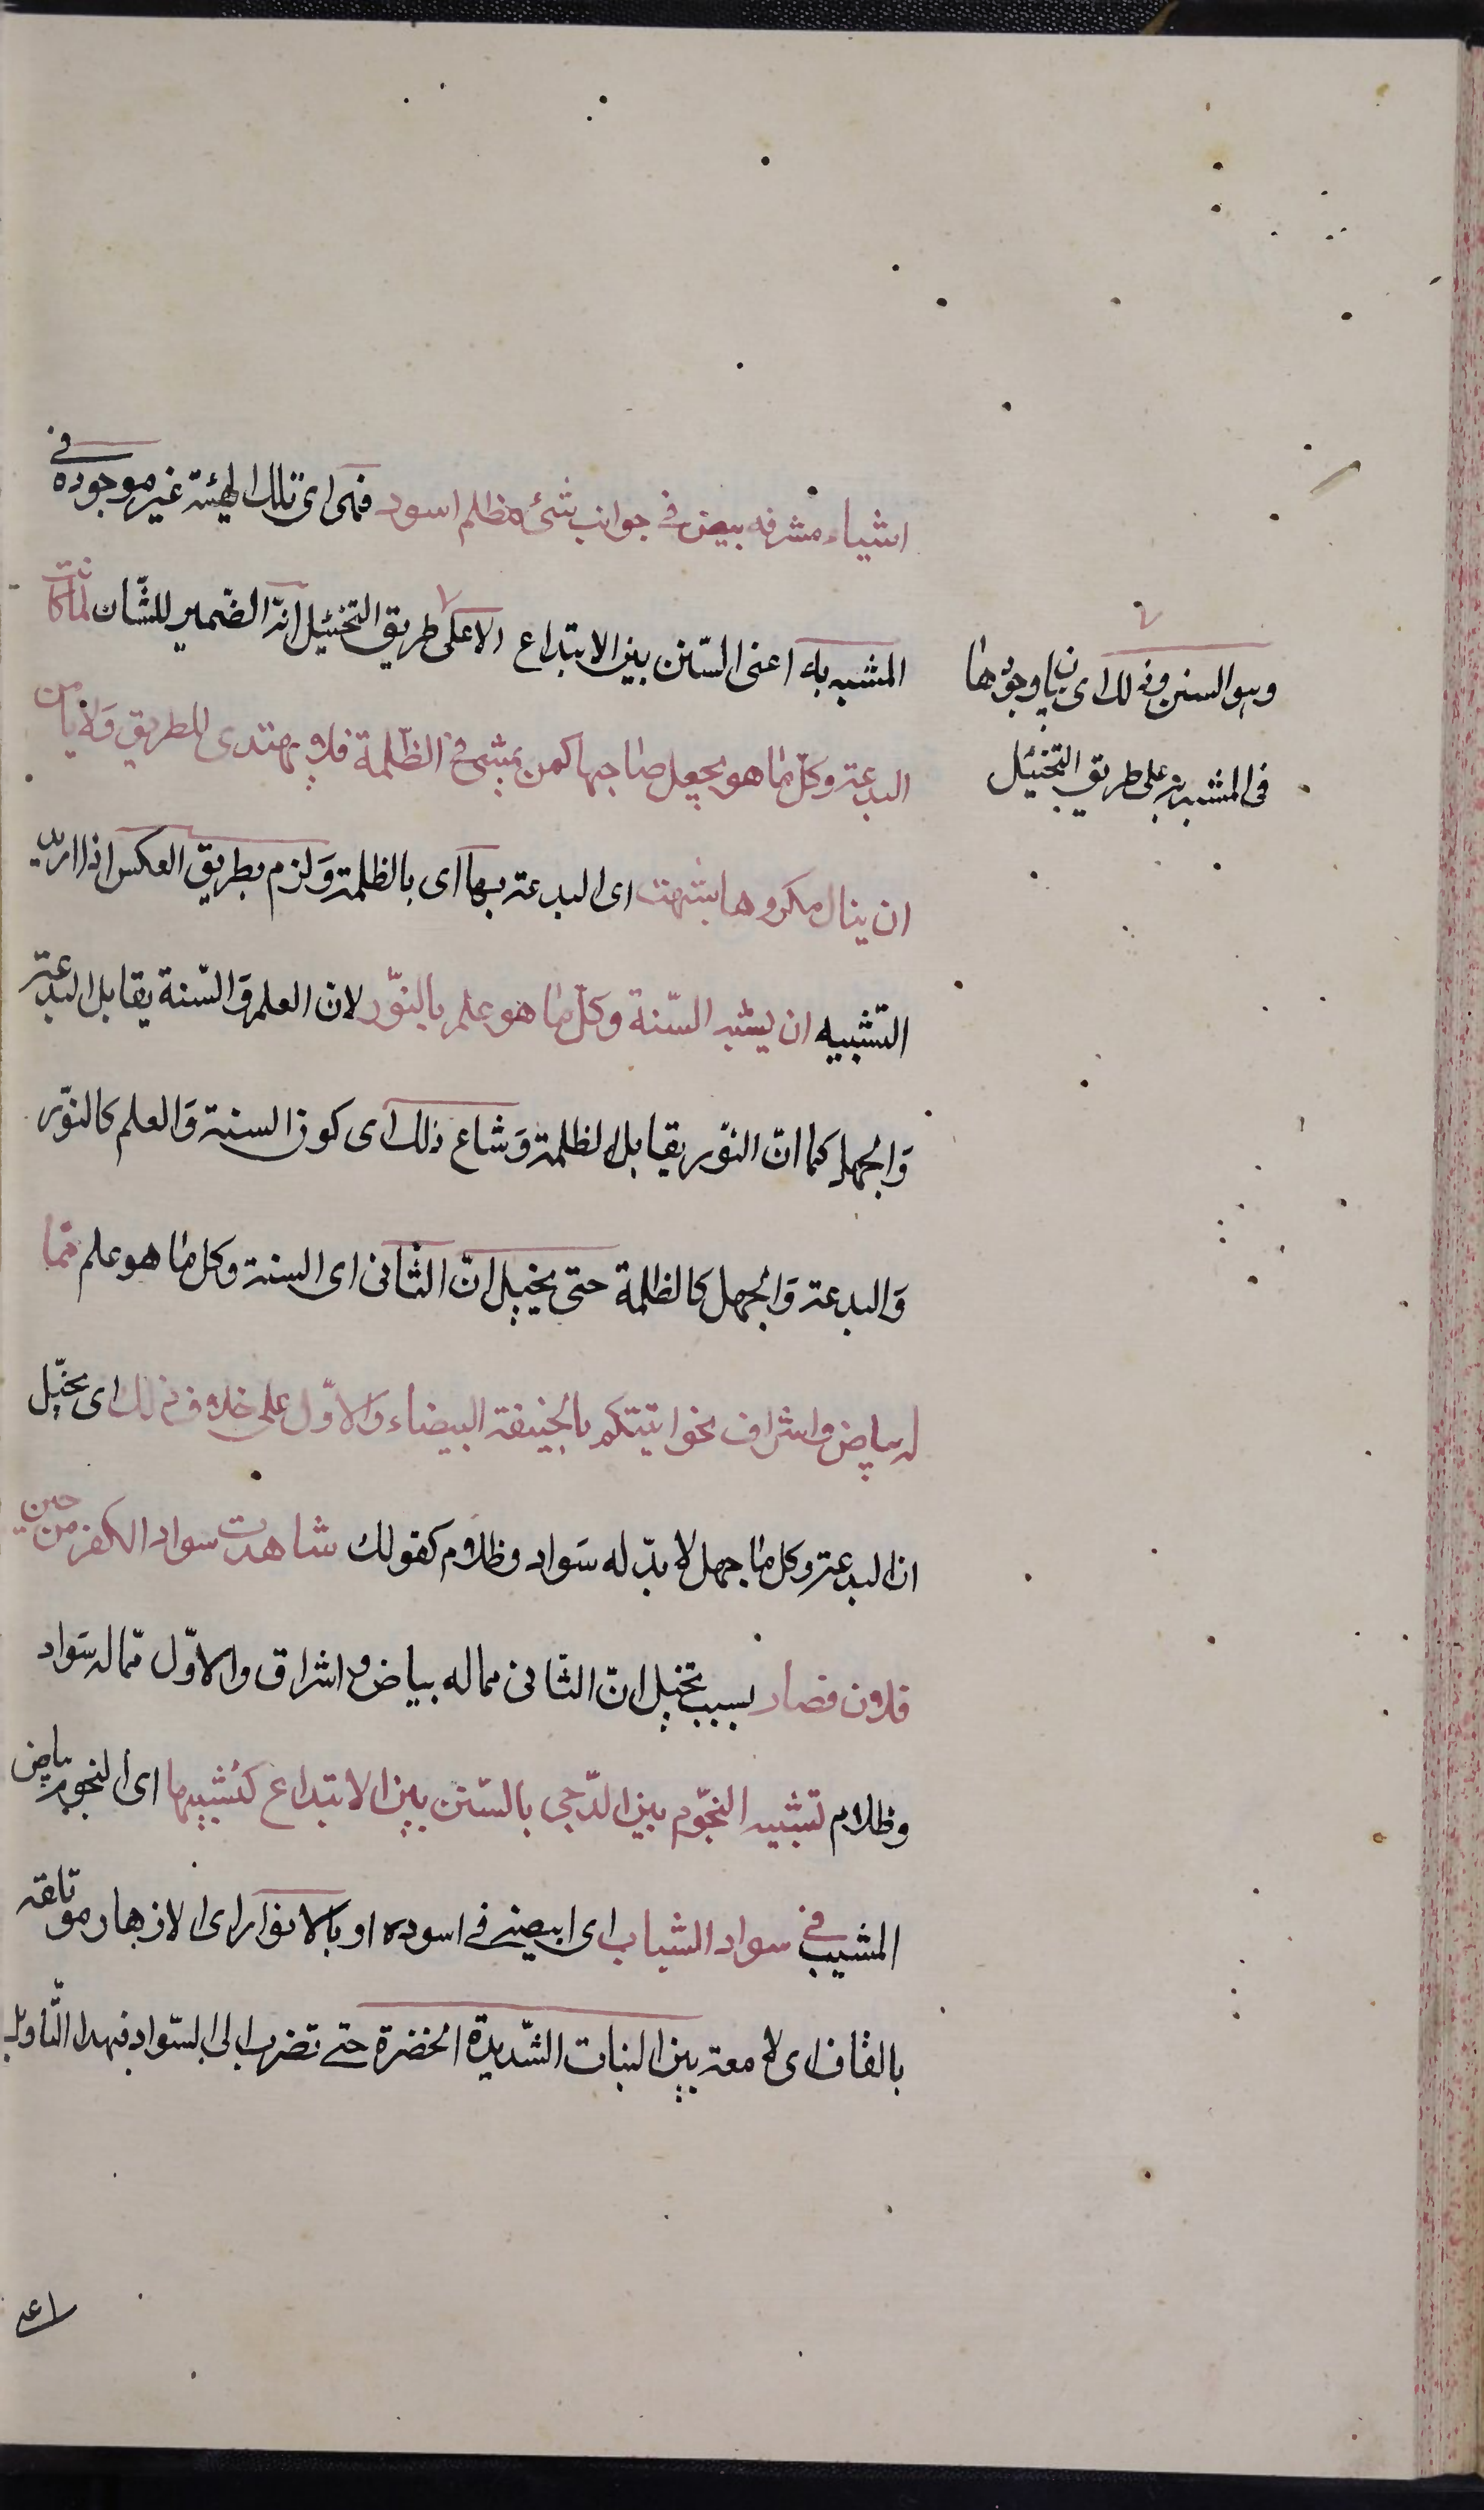 اشياء مشرقه بيض فى جوانب شئ مظلم اسود فهى اى تلك الهيئة غير موجودة فى
المشبه به اعنى السّنن بين الابتداع الا على طريق التخئيل انه الضمير للشّان لمّا كانت
البدعة وكل ما هو يجعل صاحبها كمن يمشى فى الظّلمة فلا يهتدى للطريق ولا يأمن
ان ينال مكروها بشّهت اى البدعة بها اى بالظلمة وَلزم بطريق العكس اذا اريد
التشبيه ان يشبه السّنة وكل ما هو علم بالنّور لان العلم وَالسّنة يقابل البدعة
وَالجهل كما انّ النّور يقابل الظلمة وَشاع ذلك اى كون السنة وَالعلم كالنّور
وَالبدعة وَالجهل كالظلمة حتى يخيل انّ الثّانى اى السنة وكل ما هو علم ممّا
له بياض واشراف نحو اتيتكم بالحنيفة البيضاء والاوّل على خلاف ذلك اى يخيّل
ان البدعة وكل ما جهل لا بدّ له سَواد وظلام كقولك شاهدت سواد الكفر من جبين
فلان فصار بسبب تخيل ان الثّانى مما له بياض و اشراق والاوّل ممّا له سَواد
وظلام تشبيه النجّوم بين الدّجى بالسّنن بين الابتداع كتشبيهها اى النجوم ببياض
المشيب فى سواد الشباب اى ابيضه فى اسوده او بالانوار اى الازهار موتلقة
بالقاف اى لامعة بين النبات الشّديدة الخضرة حتى تضرب الى السّواد فبهذا التّاويل
اعنى
وهو السنن وذلك اى بيان وجودها
فى المشبه به على طريق التخئيل